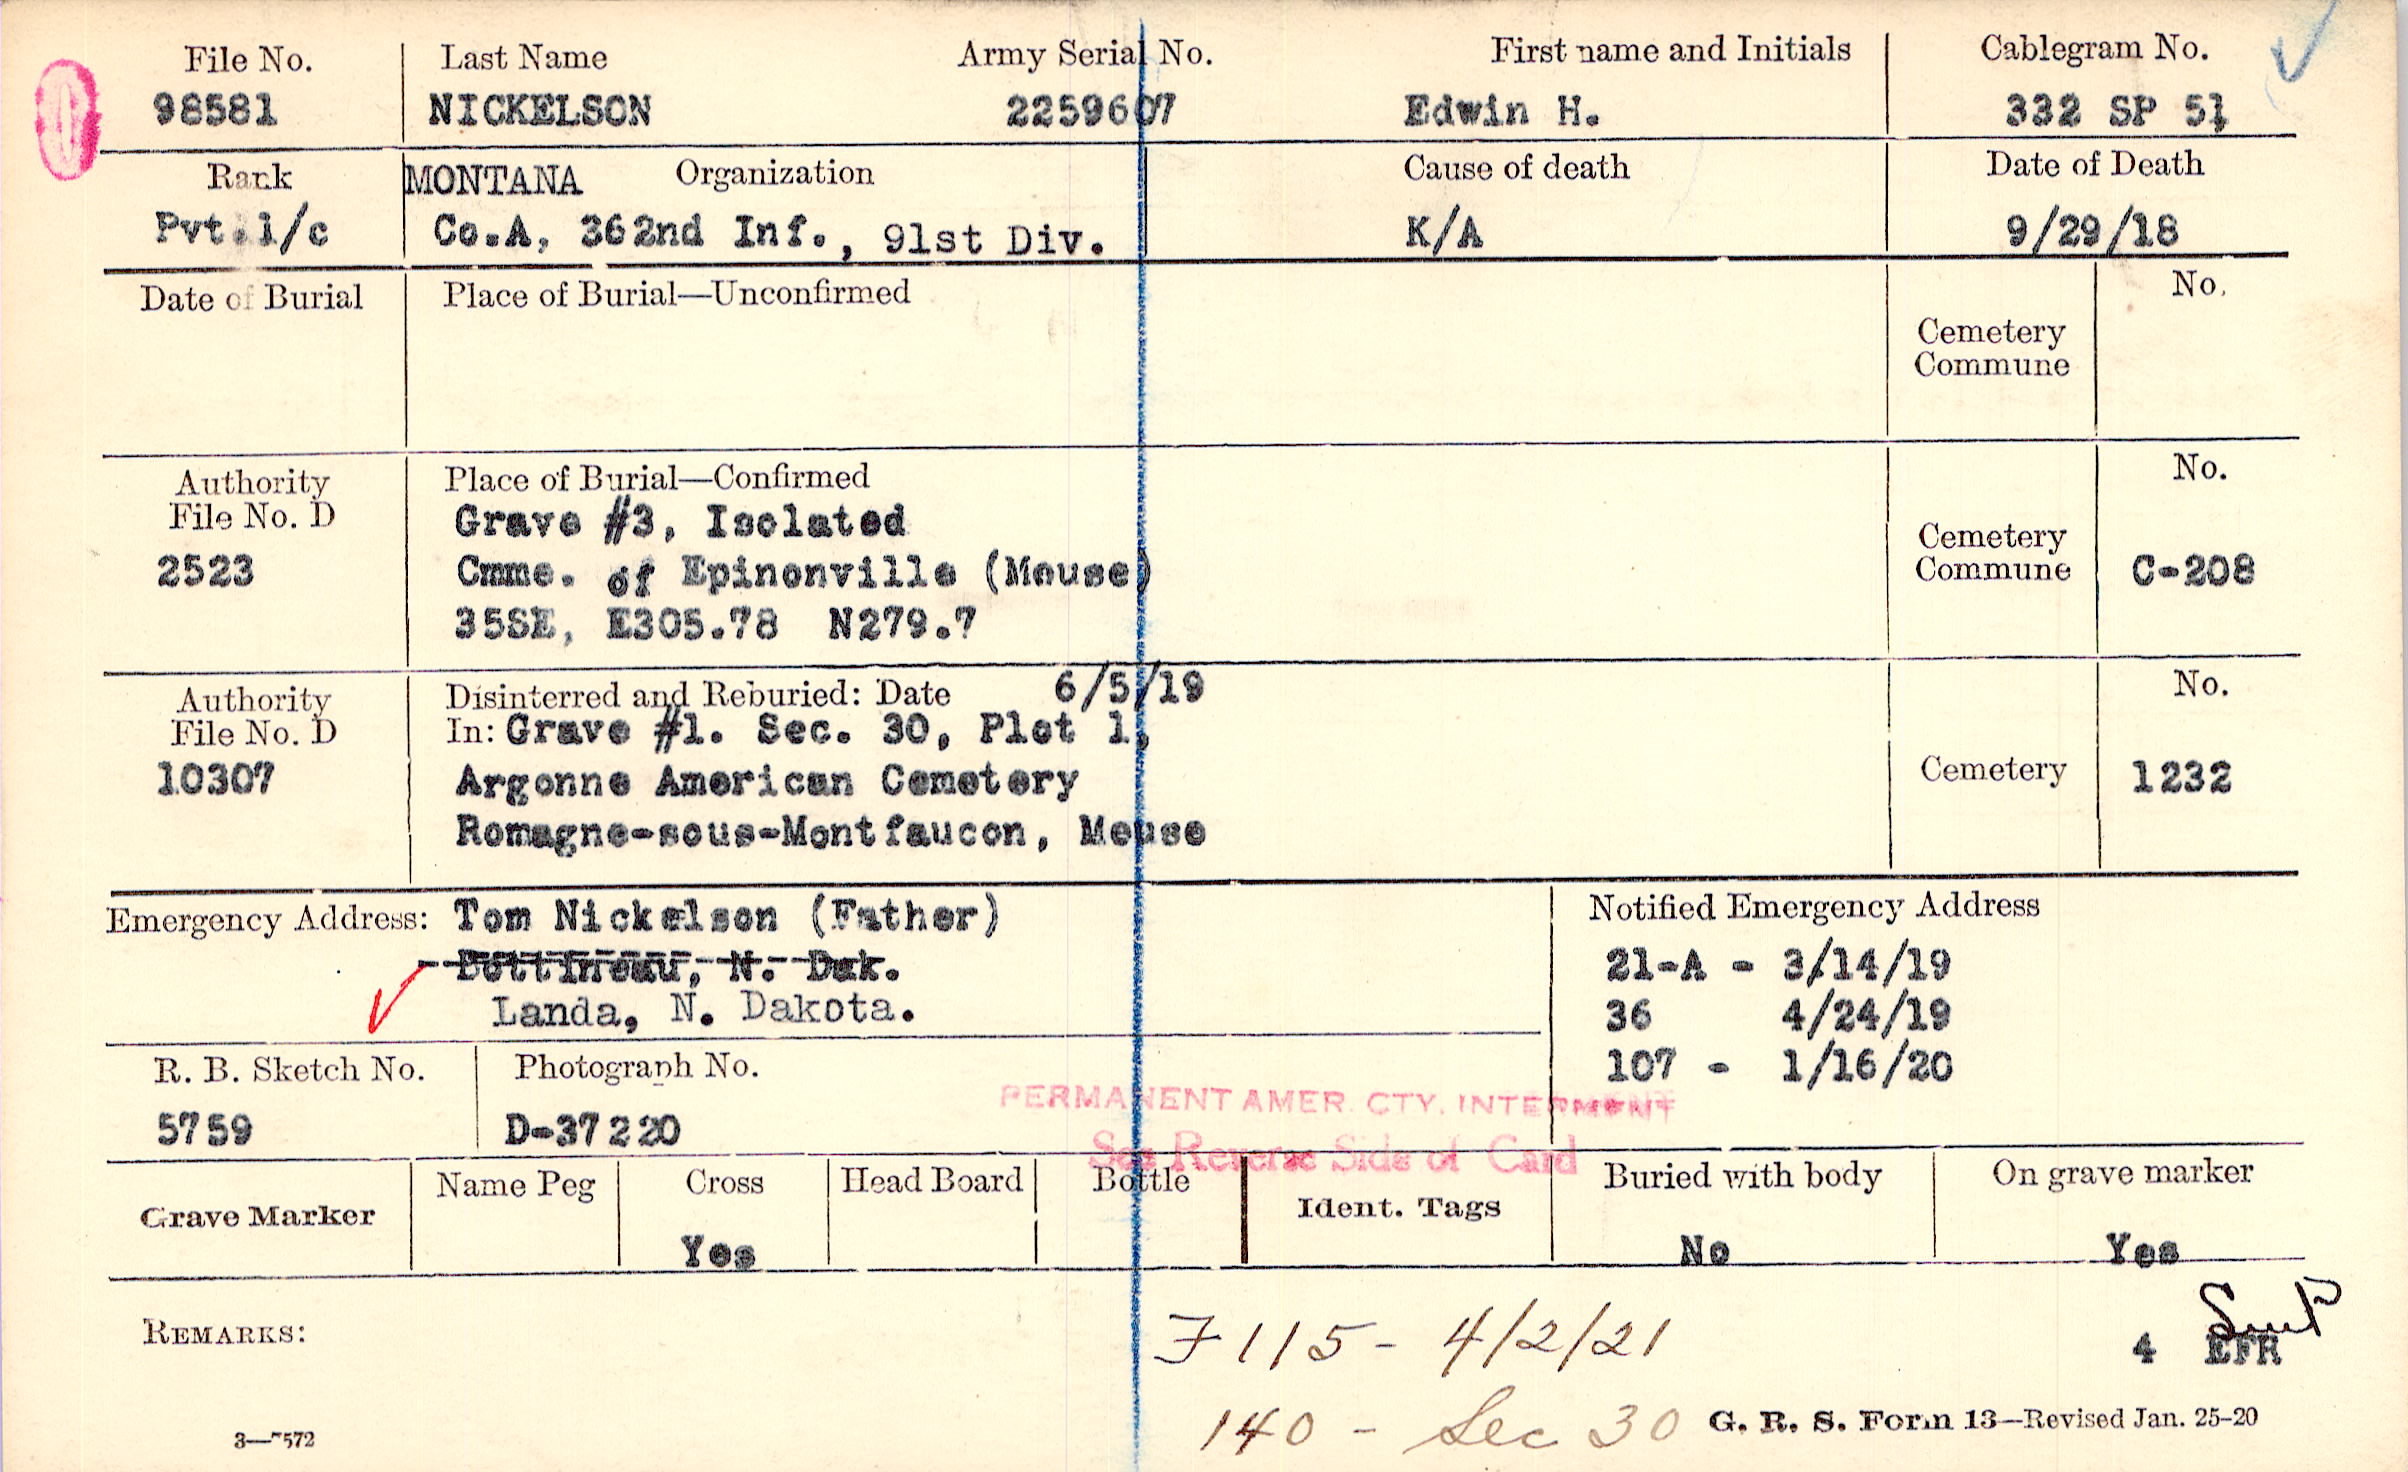 File No. Last Name Army Serial No. First name and Initials Cablegram No.
98581 NICKELSON 2259607 Edwin H. 332 SP 51
C
Rank MONTANA Organization Cause of death Date of Death
Pvt.1/c Co.A, 362nd Inf., 91st Div. K/A 9/29/18
Date of Burial Place of Burial—Unconfirmed No.
Cemetery
Commune
Authority Place of Burial—Confirmed No.
File No. D Grave #3, Isolated Cemetery
2523 Cmme. of Epinonville (Meuse) Commune C-208
35SE, E305.78 N279.7
Authority Disinterred and Reburied: Date 6/5/19 No.
File No. D In: Grave #1. Sec. 30, Plot 1,
10307 Argonne American Cemetery Cemetery 1232
Romagne-sous-Montfaucon, Meuse
Emergency Address: Tom Nickelson (Father) Notified Emergency Address
Bottineau, N. Dak. 21-A - 3/14/19
Landa, N. Dakota. 36 4/24/19
R. B. Sketch No. Photograph No. 107 - 1/16/20
PERMANENT AMER. CTY. INTERMENT
5759 D-37220
See Reverse Side of Card
Grave Marker Name Peg Cross Head Board Bottle Ident. Tags Buried with body On grave marker
Yes No Yes
REMARKS: F 115 - 4/2/21 4 EFR
140 - Sec 30 G. R. S. Form 13—Revised Jan. 25-20
3—7572